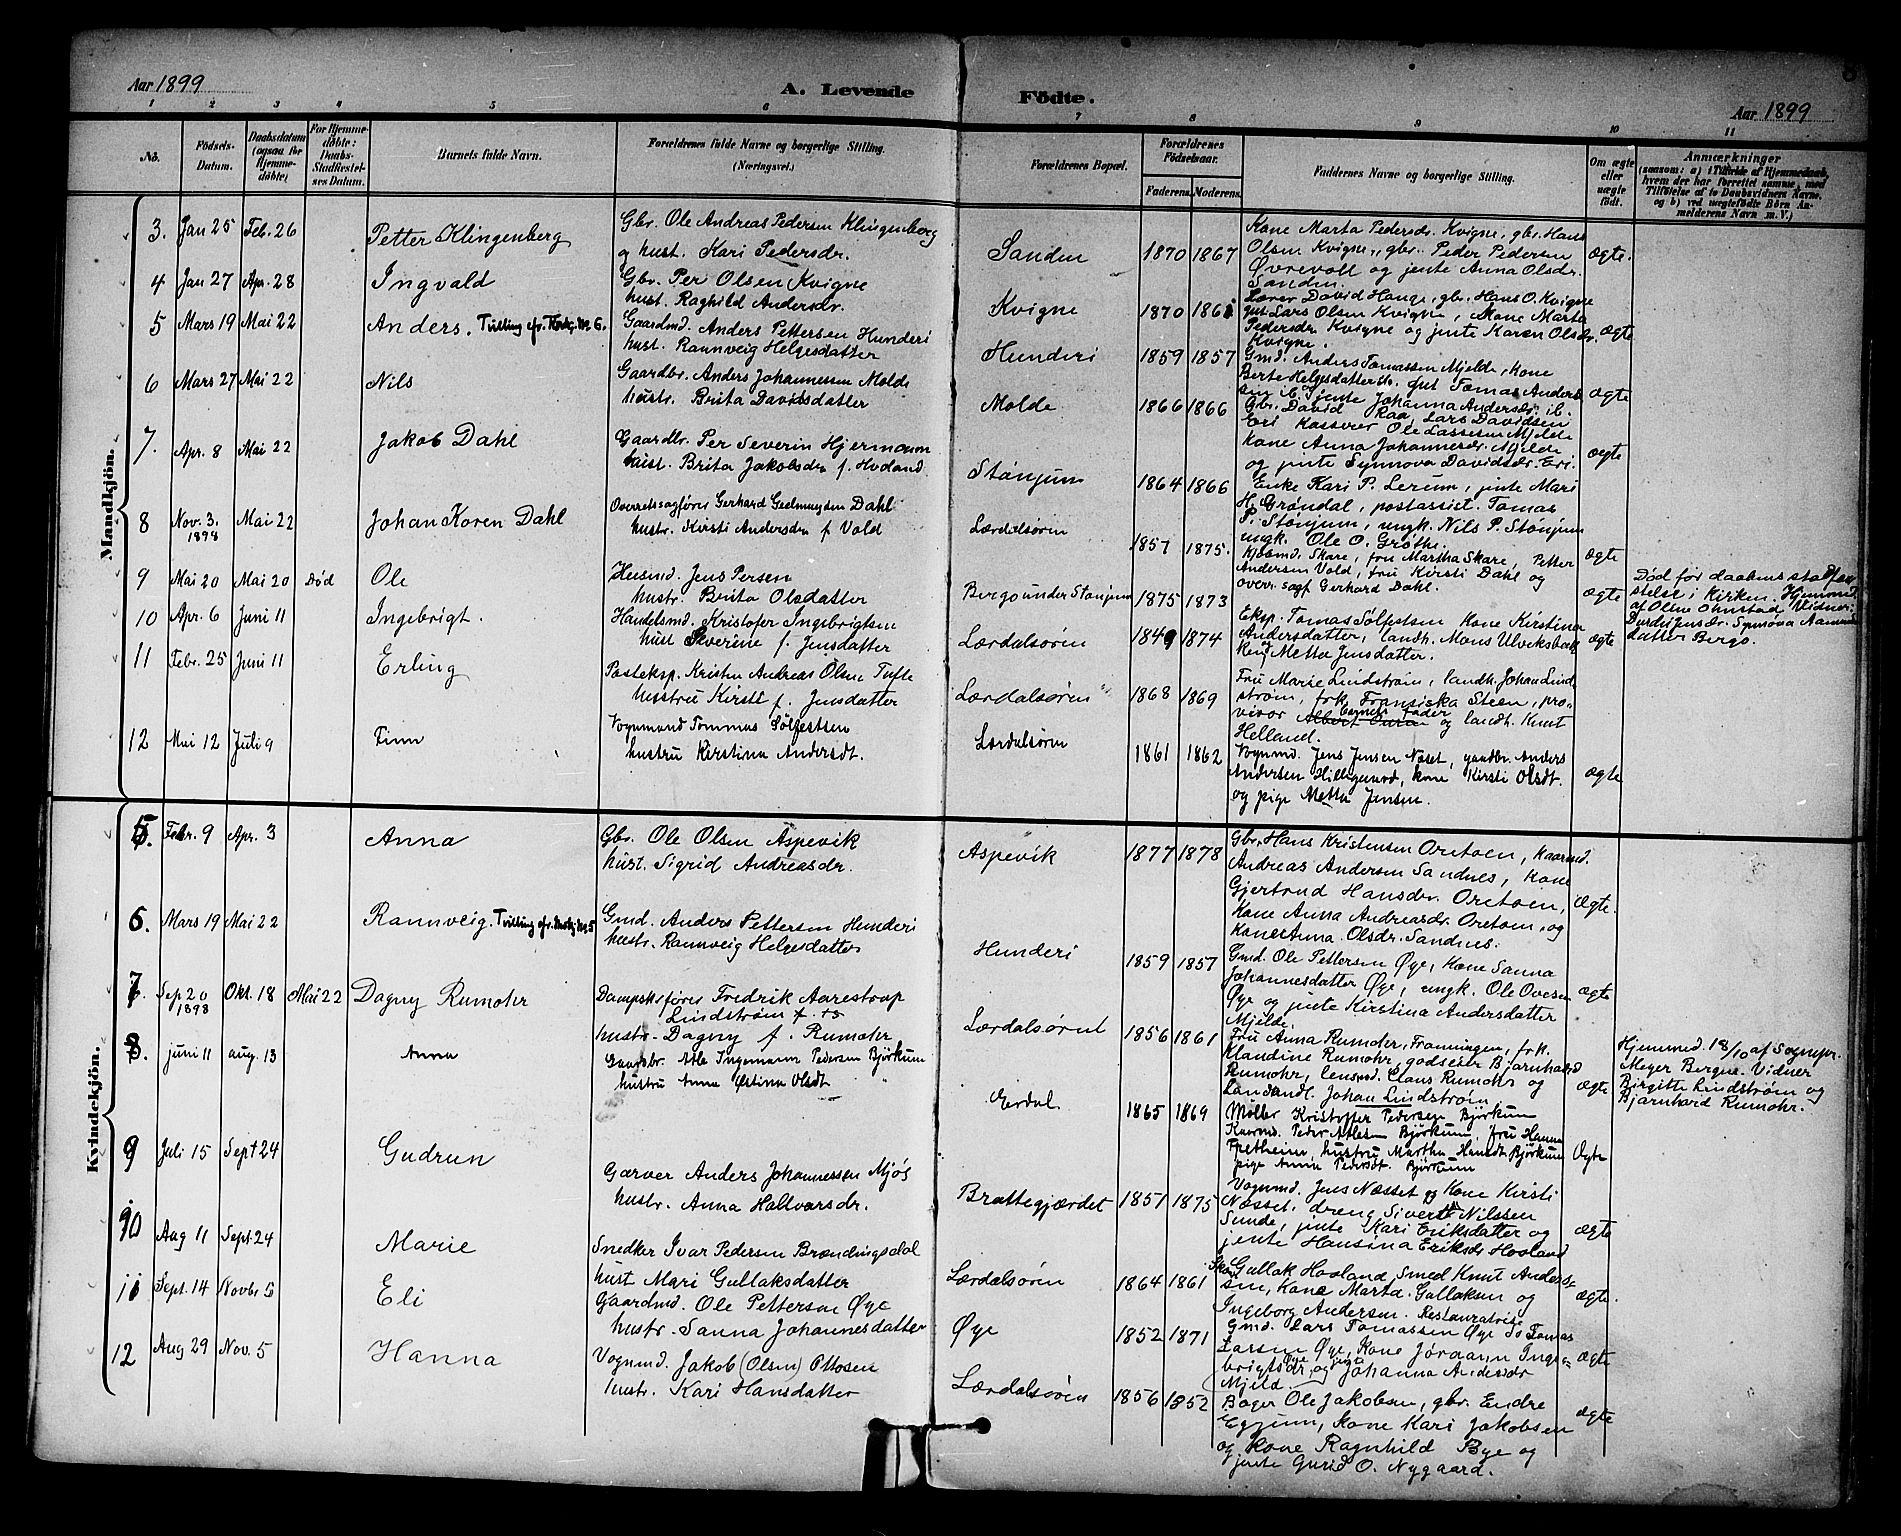 Aar 1899
A. Levende
Födte.
Aar 1899
8
1 2 3 4 5 6 7 8 9 10 11
No.
Födsels-
Datum.
Daabsdatum
(ogsaa for
Hjemme-
döbte)
For Hjemme-
döbte:
Daabs-
Stadfæstel-
ses Datum.
Barnets fulde Navn.
Forældrenes fulde Navne og borgerlige Stilling.
(Næringsvei.)
Forældrenes Bopæl.
Forældrenes
Födselsaar.
Faderens. Moderens.
Faddernes Navne og borgerlige Stilling.
Om ægte
eller
uægte
födt.
Anmærkninger
(saasom: a) i Tilfælde af Hjemmedaab,
hvem der har forrettet samme, med
Tilföielse af to Daabsvidners Navne,
og b) ved uægtefödte Börn An-
melderens Navn m. V.)
Mandkjön.
3. Jan 25 Feb. 26 Petter Klingenberg
Gbr. Ole Andreas Pedersen Klingenberg
og hust. Kari Pedersdr.
Sanden 1870 1867
Kone Marta Pedersdr. Kvigne, gbr. Hans
Olsen Kvigne, gbr. Peder Pedersen
Øvrevoll og jente Anna Olsdr.
Sanden.
ægte.
4 Jan 27 Apr. 28 Ingvald
Gbr. Per Olsen Kvigne
hust. Raghild Andersdr.
Kvigne 1870 1861
Lærer David Hauge, gbr. Hans O. Kvigne
gut Lars Olsen Kvigne, Kone Marta
Pedersdr Kvigne og jente Karen Olsdr.
Kvigne.
ægte
5 Mars 19 Mai 22 Anders. Tvilling cfr. Kvkj. No 6.
Gaardmd. Anders Pettersen Hunderi
hust. Rannveig Helgesdatter
Hunderi 1859 1857
Gmd. Anders Tomassen Mjelde, kone
Berte Helgesdatter ib. gut Tomas Anders
sen ib. og jente Johanna Andersdr. ib.
ægte
6 Mars 27 Mai 22 Nils
Gaardbr. Anders Johannessen Molde
hustr. Brita Davidsdatter
Molde 1866 1866
Gbr. David Raa, Lars Davidsen
Eri Kasserer Ole Lassesen Mjelde
Kone Anna Johannesdr. Mjelde
og jente Synnøva Davidsdr. Eri.
ægte
7. Apr. 8 Mai 22 Jakob Dahl
Gaardbr. Per Severin Hjermann
hust. Brita Jakobsdr f. Hovland
Stønjum 1864 1866
Enke Kari P. Lerum, jente Mari
H. Grøndal, postassist. Tomas
P. Stønjum, ungk. Nils P. Stønjum
ungk. Ole O. Grøthe.
8 Nov. 3. 1898 Mai 22 Johan Koren Dahl
Overretssagfører Gerhard Geelmuyden Dahl
hustr. Kirsti Andersdr f. Vold
Lærdalsøren 1857 1875.
Kjøbmd. Skare, fru Martha Skare, Petter
Andersen Vold, fru Kirsti Dahl og
overr. sagf. Gerhard Dahl.
ægte
9 Mai 20 Mai 20 Død Ole
Husmd. Jens Persen
hustr. Brita Olsdatter
Bergo under Stønjum 1875 1873
ægte
Død før daabens stadfæs
telse i Kirken. Hjemmed.
af Oline Ohnstad. Vidner:
Durdei Jensdr. Synnøva Aamunds
datter Bergo.
10 Apr. 6 Juni 11 Ingebrigt.
Handelsmd. Kristofer Ingebrigtsen
hust Severine f. Jensdatter
Lærdalsøren 1849 1874
Eksp. Tomas Sølfestsen Kone Kirstina
Andersdatter, landh. Mons Ulviksbakk
en og Metta Jensdatter.
ægte
11 Febr. 25 Juni 11 Erling
Posteksp. Kristen Andreas Olsen Tufte
hustru Kirsti f. Jensdatter
Lærdalsøren 1868 1869
Fru Marie Lindstrøm, landh. Johan Lind
strøm, frk. Fransiska Steen, pro-
visor barnets fader og landh. Knut
Helland.
12 Mai 12 Juli 9 Finn
Vognmand Tommas Sølfestsen
hustru Kirstina Andersdt.
Lærdalsøren 1861 1862
Vognmd. Jens Jensen Næset, gaardbr. Anders
Andersen Hillegunnd, kone Kirsti Olsdt.
og pige Metta Jensen.
ægte
Kvindekjön.
5. Febr. 9 Apr. 3 Anna
Gbr. Ole Olsen Aspevik
hust. Sigrid Andreasdr.
Aspevik 1877 1878
Gbr. Hans Kristensen Oretoen, Kaarmd.
Andreas Andersen Sandnes, Kone
Gjertrud Hansdr. Oretoen,
Kone Anna Andreasdr. Oretoen, og
Kone Anna Olsdr. Sandnes.
Ægte.
6. Mars 19 Mai 22 Rannveig. Tvilling cfr. Mnkj No 5
Gmd. Anders Pettersen Hunderi
hustr. Rannveig Helgesdatter
Hunderi 1859 1857
Gmd. Ole Pettersen Øye, Kone Sanna
Johannesdatter Øye, ungk. Ole Ovesen
Øye og jente Kirstina Andersdatter
Mjelde.
ægte
7. Sep 20 1898 Okt. 18 Mai 22 Dagny Rumohr
Dampskfører Fredrik Aarestrup
Lindstrøm
hustr. Dagny f. Rumohr
Lærdalsøren 1856 1861
Fru Anna Rumohr, Fronningen, frk.
Klaudine Rumohr, godseier Bjarnhard
Rumohr, lensmd. Claus Rumohr og
Landhandl. Johan Lindstrøm.
ægte
Hjemmed. 18/10 af Sognepr.
Meyer Bergne. Vidner
Birgitte Lindstrøm og
Bjarnhard Rumohr.
8. juni 11 aug. 13 Anna
Gaardbr. Atle Ingemann Pedersen Björkum
hustru Anna Østina Olsdt
Eirdal 1865 1869
Møller Kristoffer Pedersen Björkum
Kaarmd. Peder Atlesen Björkum, fru Hanna
Fretheim, hustru Martha Hansdt Björkum
pige Anna Pedersdt. Björkum
Ægte
9 Juli 15 Sept 24 Gudrun
Garver Anders Johannessen Mjøs
hustr. Anna Hallvarsdr.
Brattegjærdet 1851 1875
Vognmd. Jens Næsset og Kone Kirsti
Næsset, dreng Sivert Nilssen
Sunde, jente Kari Eriksdatter og
jente Hansina Eriksdr Hovland
ægte
10 Aug 11 Sept 24 Marie
Snedker Ivar Pedersen Brændingsdal
hust Mari Gullaksdatter
Lærdalsøren 1864 1861
Skom. Gullak Hovland, Smed Knut Anders-
sen, Kone Marta Gullaksen og
Ingeborg Andersen. Restauratrise
ægte.
11 Sept. 14 Novbr 5 Eli
Gaardmd. Ole Pettersen Øye
hustr. Sanna Johannesdatter
Øye 1852 1871
Gmd. Lars Tomassen Øye, Do Tomas
Larsen Øye, Kone Jøraann Inge-
brigtsdr Øye og jente Johanna Andersdr
Mjeld.
ægte
12 Aug 29 Nov. 5 Hanna
Vognmd. Jakob (Olsen) Ottosen
hustr. Kari Hansdatter
Lærdalsøren 1856 1852
Bager Ole Jakobsen, gbr. Endre
Eggum, Kone Kari Jakobsen
og kone Ragnhild Bye og
jente Gurid O. Nygaard.
ægte